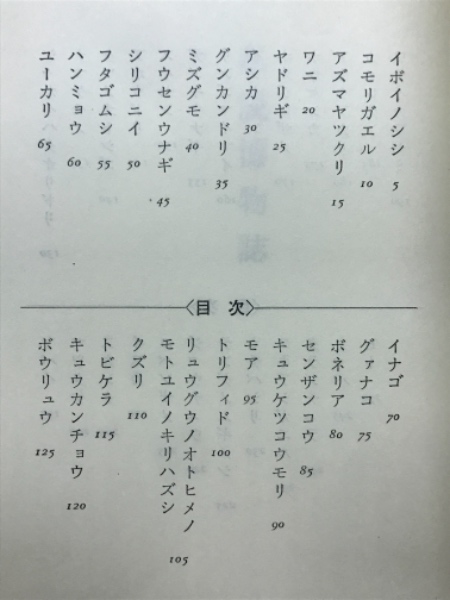 イボイノシシ 5
コモリガエル 10
アズマヤツクリ 15
ワニ 20
ヤドリギ 25
アシカ 30
グンカンドリ 35
ミズグモ 40
フウセンウナギ 45
シリコニイ 50
フタゴムシ 55
ハンミョウ 60
ユーカリ 65
〈目次〉
イナゴ 70
グァナコ 75
ボネリア 80
センザンコウ 85
キュウケツコウモリ 90
モア 95
トリフィド 100
リュウグウノオトヒメノ
モトユイノキリハズシ 105
クズリ 110
トビケラ 115
キュウカンチョウ 120
ボウリュウ 125